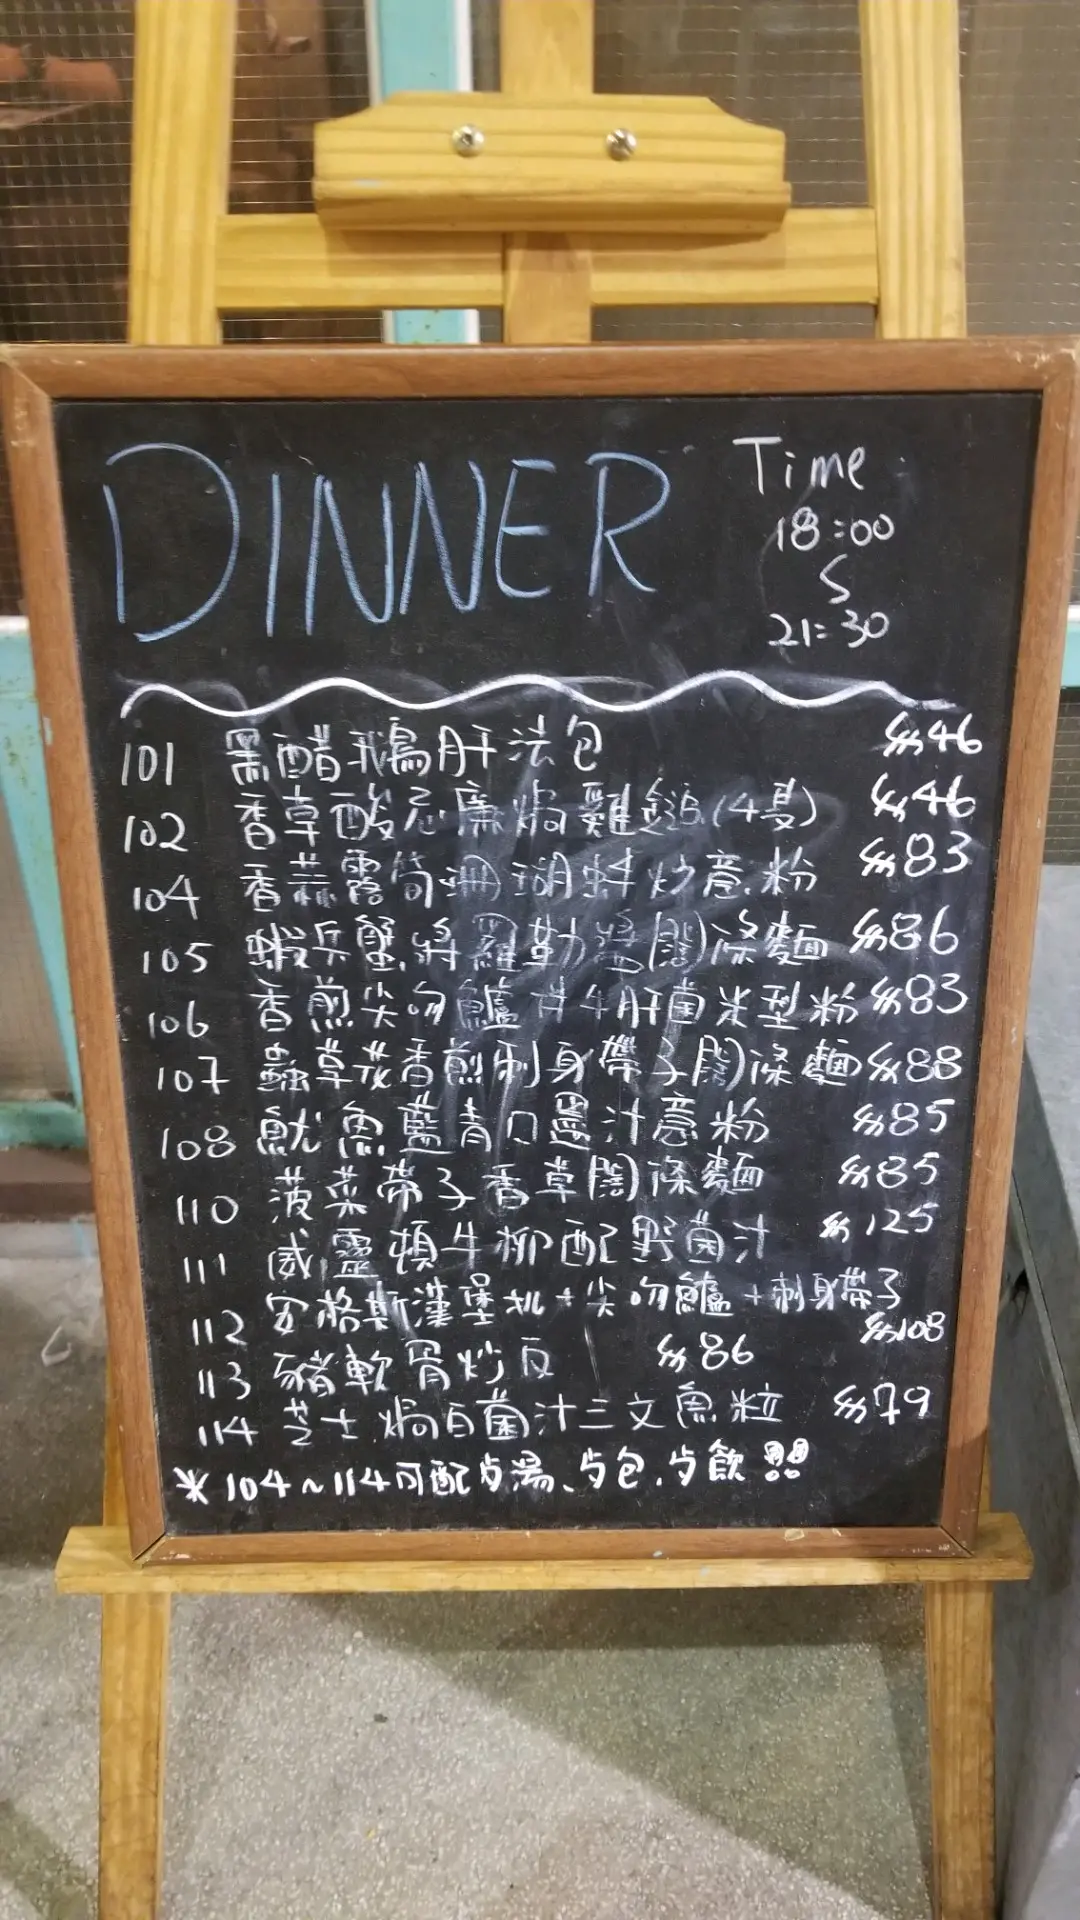 DINNER
Time
18:00
21:30
101 黑醋鵝肝法包 $46
102 香草酸忌廉焗雞鎚(4隻) $46
104 香蒜露筍珊瑚蚌炒意粉 $83
105 蝦兵蟹將羅勒醬闊條麵 $86
106 香煎尖吻鱸拌牛肝菌米型粉 $83
107 蟲草花香煎刺身帶子闊條麵 $88
108 魷魚藍青口墨汁意粉 $85
110 菠菜帶子香草闊條麵 $85
111 威靈頓牛柳配野菌汁 $125
112 安格斯漢堡扒+尖吻鱸+刺身帶子 $108
113 豬軟骨炒飯 $86
114 芝士焗白菌汁三文魚粒 $79
* 104~114可配步湯、步包、步飲!!